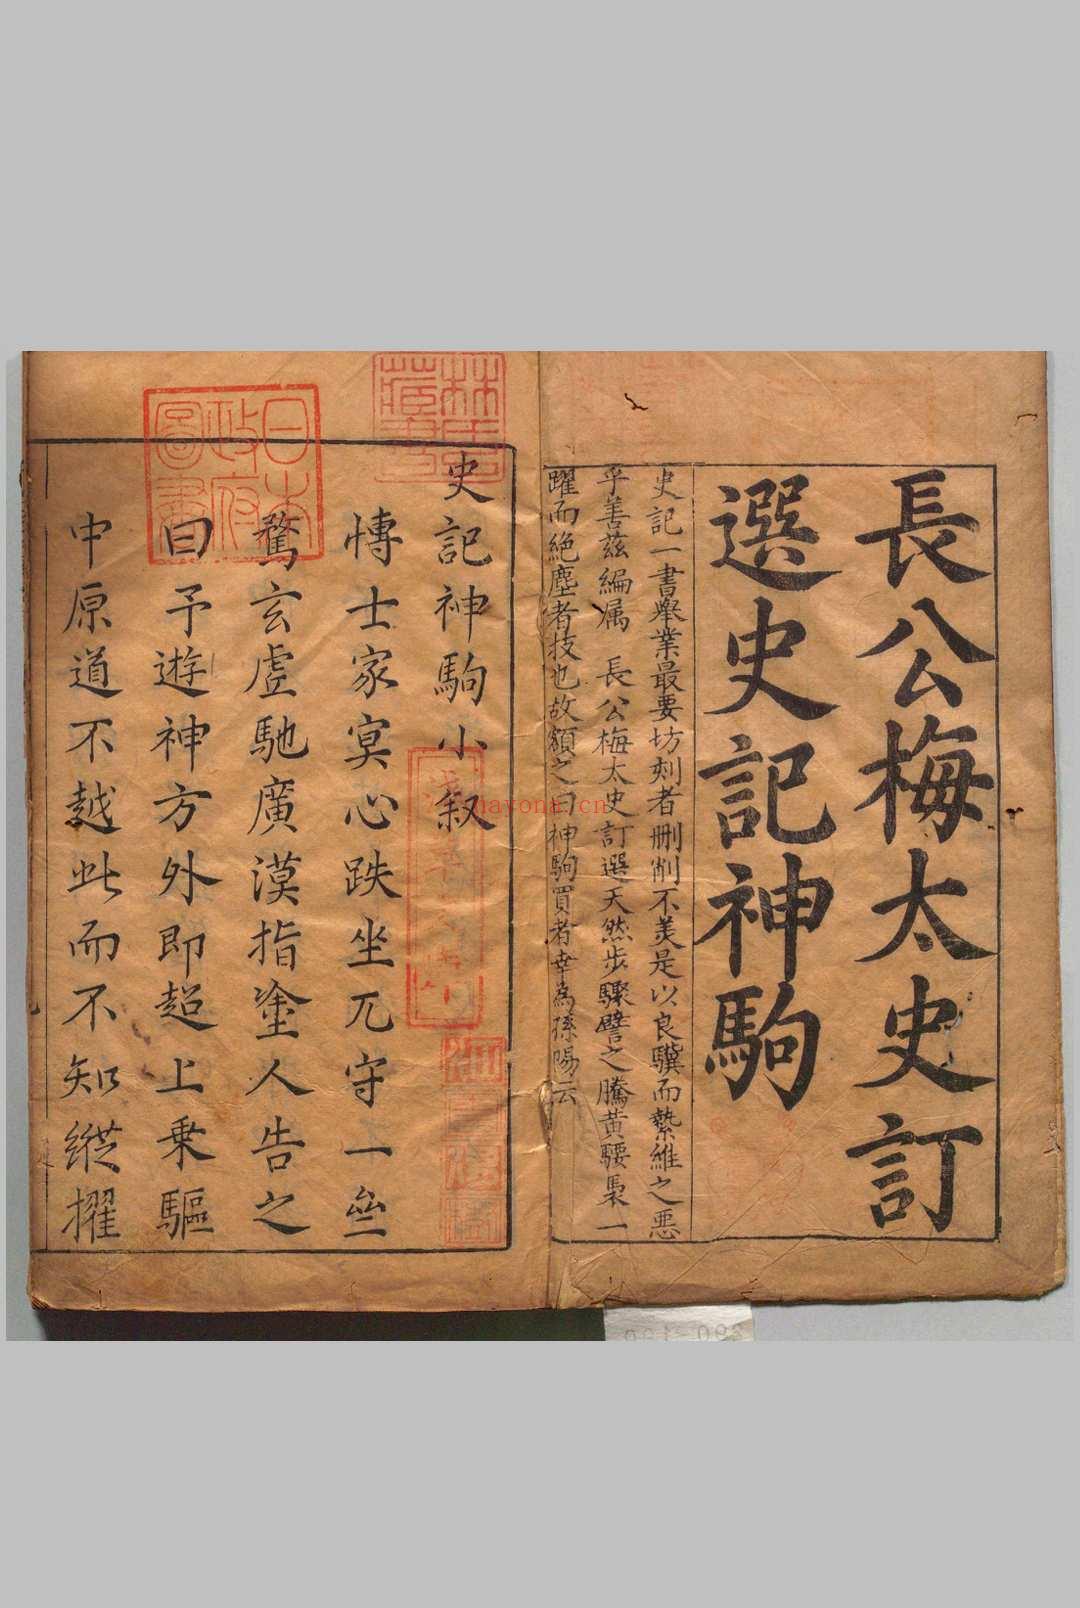 長公梅太史訂
選史記神駒
史記一書舉業最要坊刻者刪削不羙是以良驥而縶維之惡
乎善茲編属 長公梅太史訂選天然步驟譬之騰黃騕褭一
躍而絕塵者技也故額之曰神駒買者幸為孫陽云
史記神駒小叙
慱士家㝠心跌坐兀守一㘴
騖玄虛馳廣漠指塗人告之
曰予遊神方外即超上乗驅
中原道不越此而不知縱擢
林氏藏書
日本政府圖書
nayona.cn